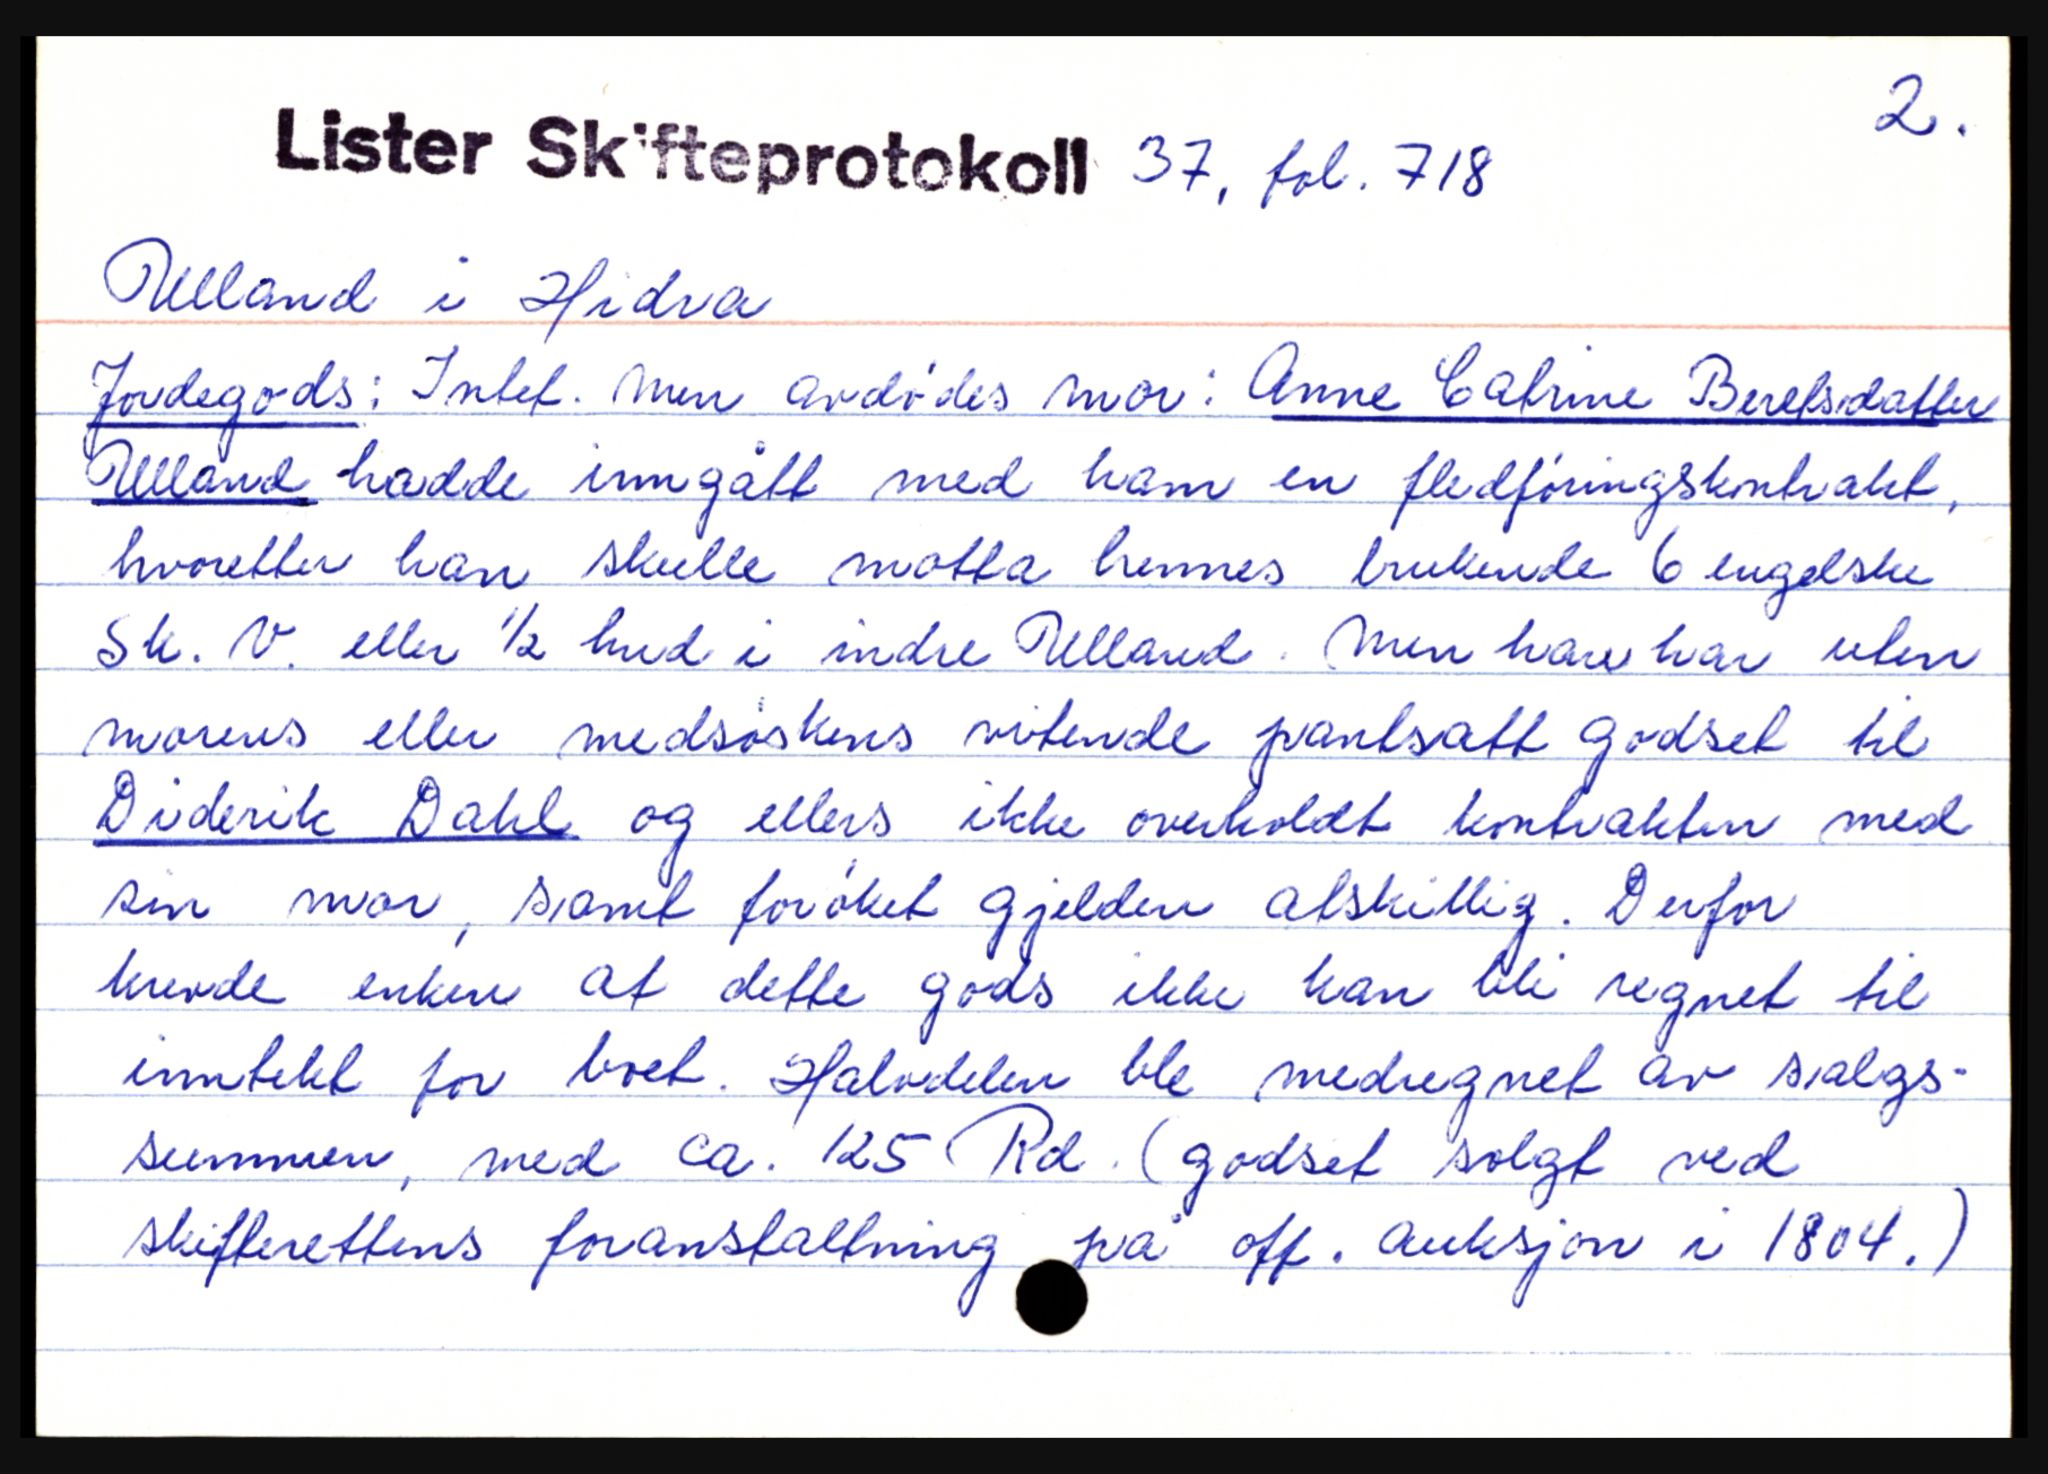 2.
Lister Skifteprotokoll 37, fol. 718
Ulland i Hidra
Jordegods: Intet. Men avdødes mor: Anne Catrine Beretsdatter
Ulland hadde inngått med ham en fledføringskontrakt,
hvoretter han skulle motta hennes brukende 6 engelske
Sk. V. eller 1/2 hud i indre Ulland. Men han har uten
morens eller medsøskens vitende pantsatt godset til
Diderik Dahl og ellers ikke overholdt kontrakten med
sin mor, samt forøket gjelden atskillig. Derfor
krevde enken at dette gods ikke kan bli regnet til
inntekt for boet. Halvdelen ble medregnet av salgs-
summen, med ca. 125 Rd. (godset solgt ved
skifterettens foranstaltning på off. auksjon i 1804.)